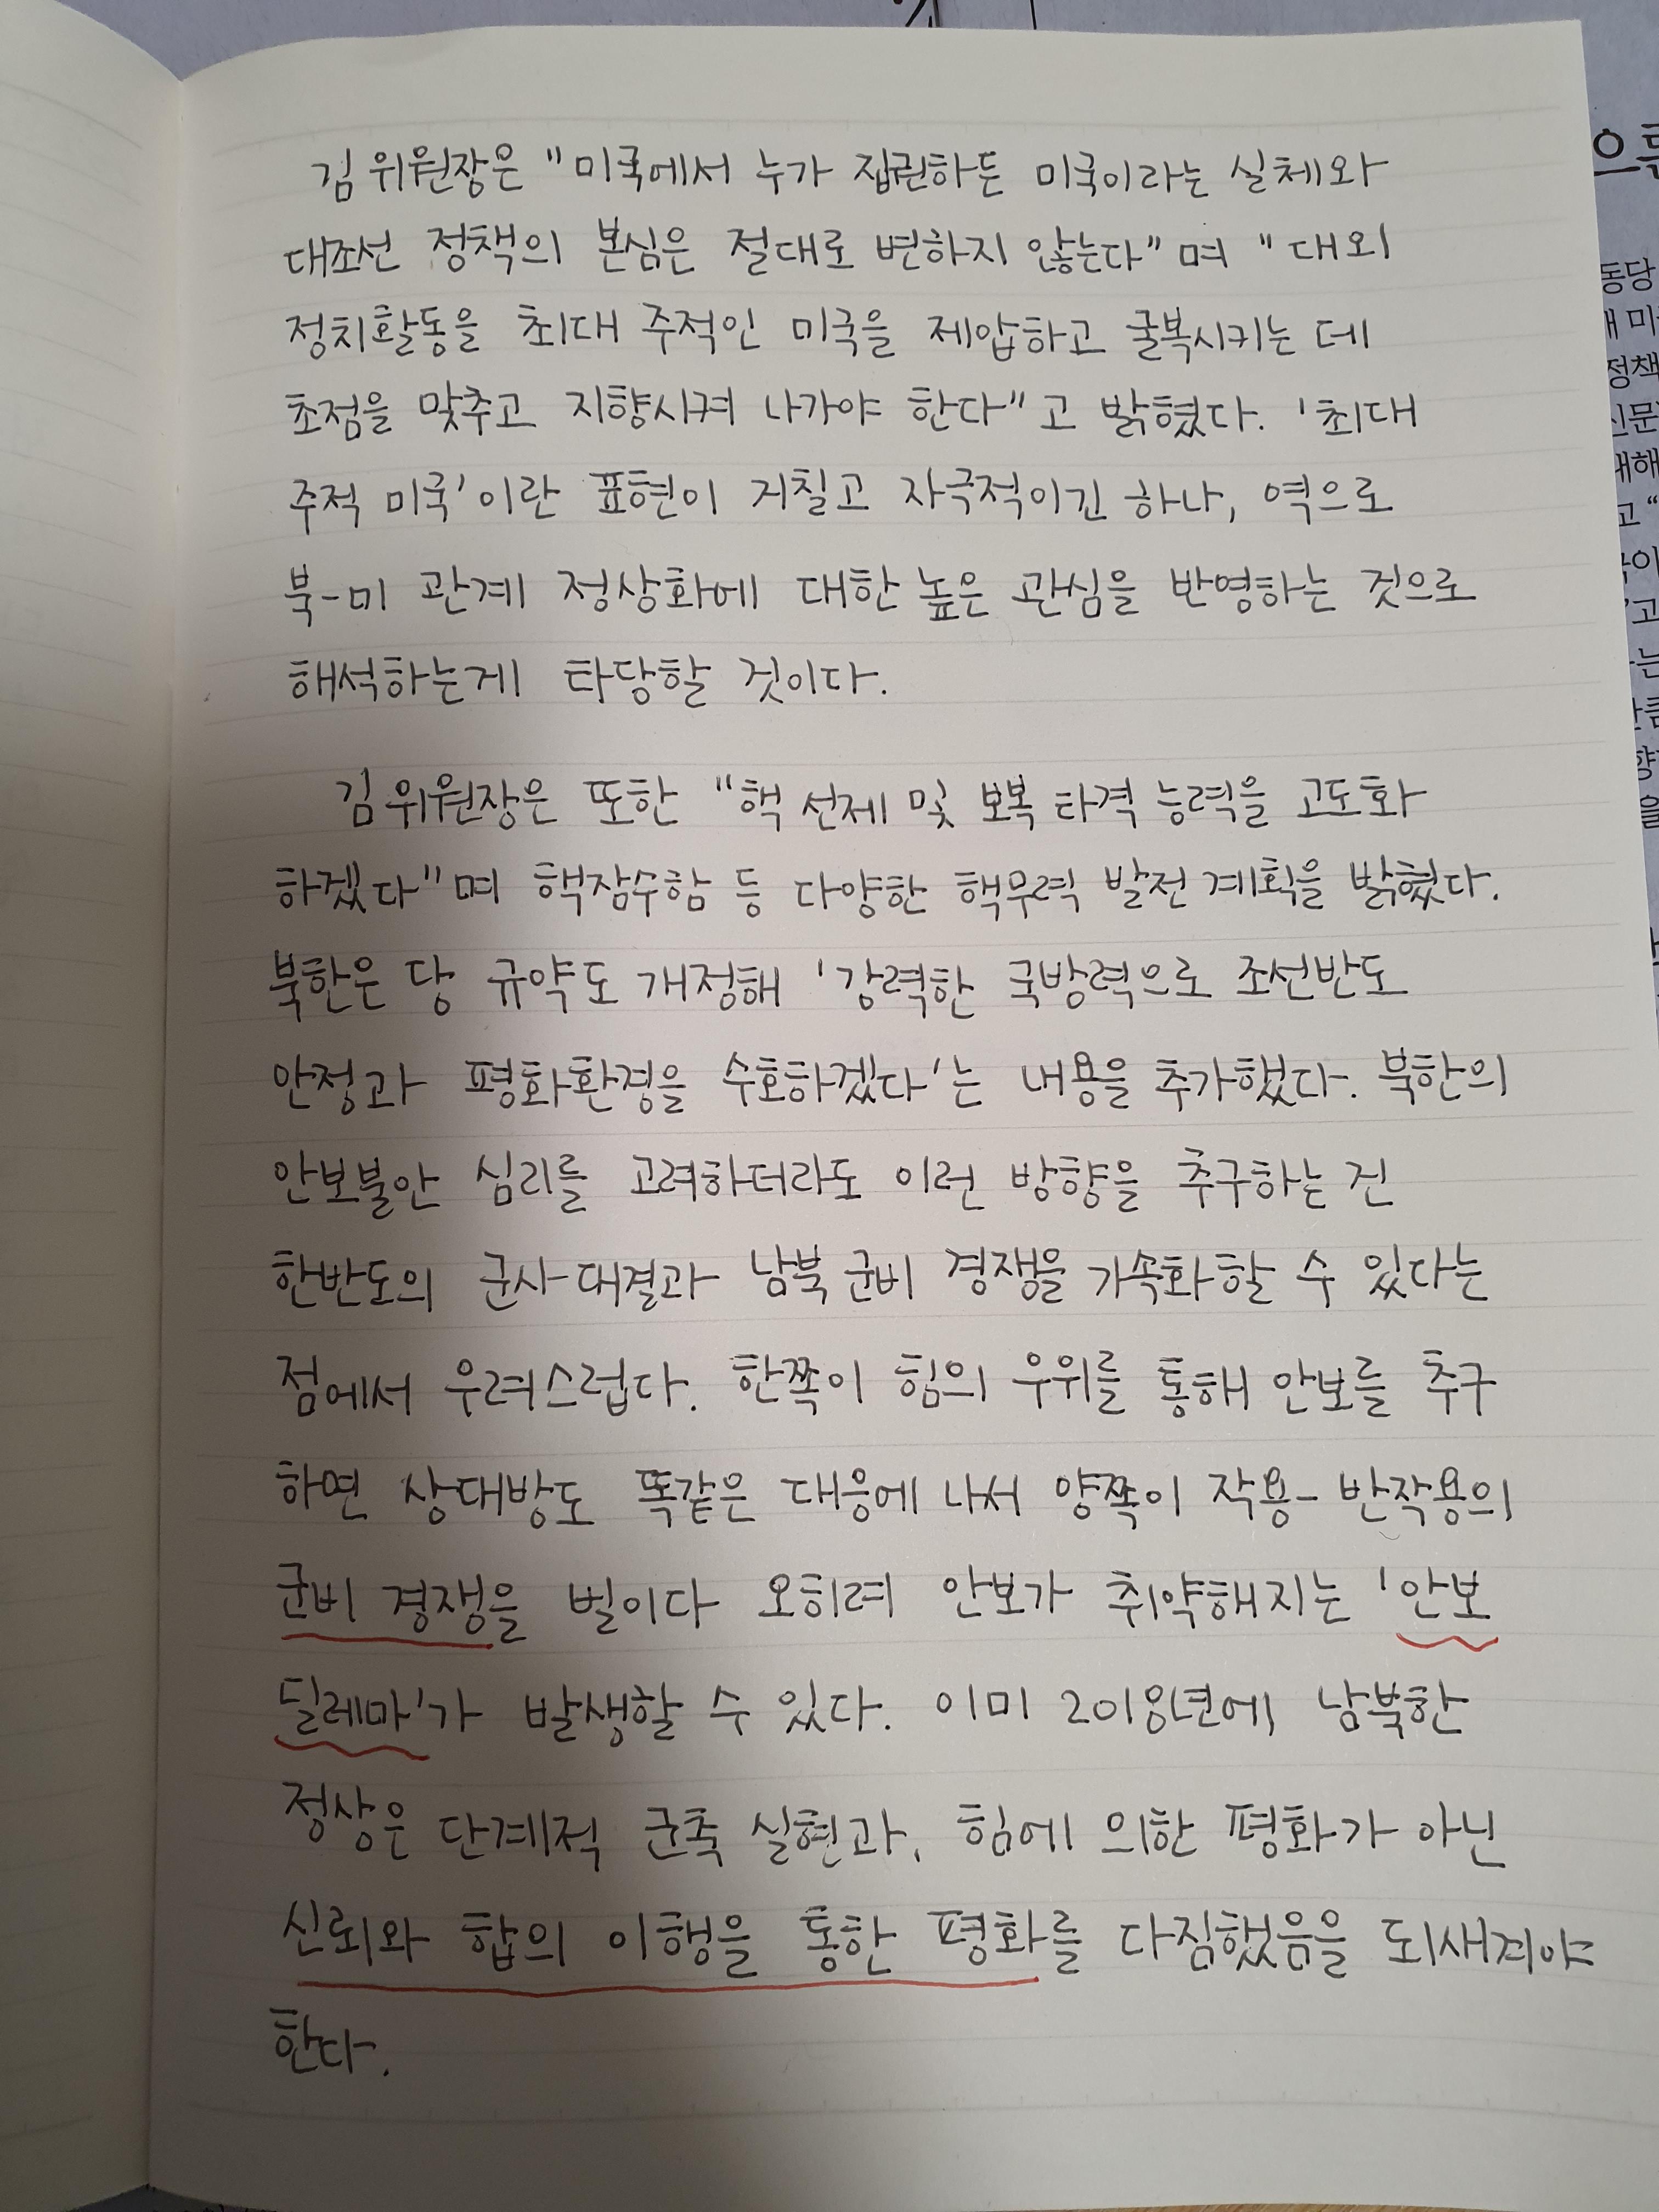 김위원장은 "미국에서 누가 집권하든 미국이라는 실체와
대조선 정책의 본심은 절대로 변하지 않는다"며 "대외
정치활동을 최대 주적인 미국을 제압하고 굴복시키는 데
초점을 맞추고 지향시켜 나가야 한다"고 밝혔다. '최대
주적 미국'이란 표현이 거칠고 자극적이긴 하나, 역으로
북-미 관계 정상화에 대한 높은 관심을 반영하는 것으로
해석하는게 타당할 것이다.
김위원장은 또한 "핵 선제 및 보복 타격 능력을 고도화
하겠다"며 핵잠수함 등 다양한 핵무력 발전 계획을 밝혔다.
북한은 당 규약도 개정해 '강력한 국방력으로 조선반도
안정과 평화환경을 수호하겠다'는 내용을 추가했다. 북한의
안보불안 심리를 고려하더라도 이런 방향을 추구하는 건
한반도의 군사대결과 남북 군비 경쟁을 가속화할 수 있다는
점에서 우려스럽다. 한쪽이 힘의 우위를 통해 안보를 추구
하면 상대방도 똑같은 대응에 나서 양쪽이 작용-반작용의
군비 경쟁을 벌이다 오히려 안보가 취약해지는 '안보
딜레마'가 발생할 수 있다. 이미 2018년에 남북한
정상은 단계적 군축 실현과, 힘에 의한 평화가 아닌
신뢰와 합의 이행을 통한 평화를 다짐했음을 되새겨야
한다.
으
동당
미
정책
신문
해
고 "
이
고
는
을